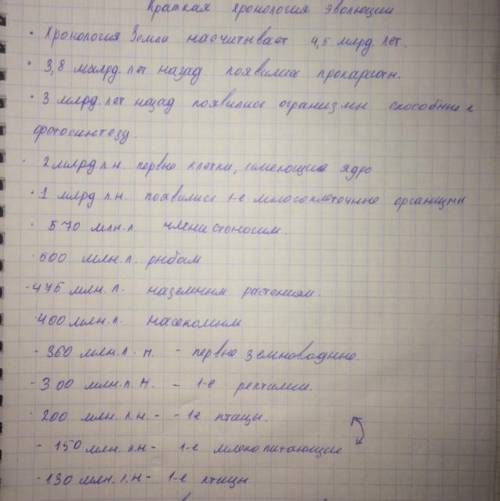 Краткая хронология эволюции
· Хронология Земли насчитывает 4,5 млрд. лет.
· 3,8 млрд. лет назад появились прокариоты.
· 3 млрд. лет назад появились организмы способные к
фотосинтезу.
· 2 млрд л.н. первые клетки, имеющие ядро
· 1 млрд л.н. появились 1-е многоклеточные организмы
· 570 млн.л. членистоногим.
· 500 млн.л. рыбам
· 475 млн.л. наземным растениям.
· 400 млн.л. насекомым
- 360 млн.л.н. - первые земноводные.
- 300 млн.л.н. - 1-е рептилии.
· 200 млн.л.н. - - 1е птицы.
- 150 млн.л.н - 1-е млекопитающие
- 130 млн.л.н - 1-е птицы